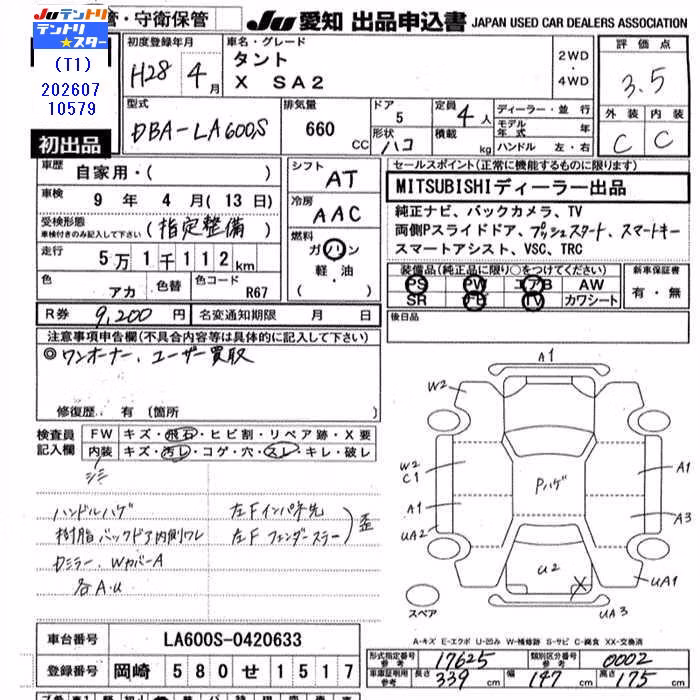 Ju テントリ
テントリ★スター
管・守衛保管
Ju 愛知 出品申込書 JAPAN USED CAR DEALERS ASSOCIATION
(T1)
202607
10579
初出品
初度登録年月
H28 4月
車名・グレード
タント
X SA2
2WD
・
4WD
評価点
3.5
外装 内装
C C
型式
DBA-LA600S
排気量
660 CC
ドア
5
形状
ハコ
定員
4人
積載
kg
ディーラー・並行
モデル年式 年
ハンドル 左・右
車歴
自家用・( )
車検
9年 4月(13日)
受検形態
車検付きのみ記入して下さい
(指定整備)
走行
5万1千112km
色
アカ
色替
色コード
R67
シフト
AT
冷房
AAC
燃料
ガソリン
軽・油
( )
セールスポイント(正常に機能するものに限ります)
MITSUBISHIディーラー出品
純正ナビ、バックカメラ、TV
両側Pスライドドア、プッシュスタート、スマートキー
スマートアシスト、VSC、TRC
装備品(純正品に限り○をつけてください)
PS PW エアB AW
SR TV カワシート
新車保証書
有・無
後日品
R券 9,200円
名変通知期限 月 日
注意事項申告欄(不具合内容等は具体的に記入して下さい)
◎ワンオーナー、ユーザー買取
修復歴. 有 (箇所
検査員記入欄
FW キズ・飛石・ヒビ割・リペア跡・X要
内装 キズ・汚レ・コゲ・穴・スレ・キレ・破レ
シミ
ハンドルハゲ
樹脂バックドア内側ワレ
Dミラー、WカバーA
各A.U
左Fインパネ先
左Fフェンダーステー
歪
A1
W2
W2
C1
A1
UA2
Pハゲ
A1
A3
U2
X
UA1
UA3
スペア
A-キズ E-エクボ U-凹み W-補修跡 S-サビ C-腐食 XX-交換済
車台番号
LA600S-0420633
登録番号
岡崎 580 せ 1517
形式指定番号
参考
17625
類別区分番号
参考
0002
車庫証明用
参考
長さ 339cm
幅 147cm
高さ 175cm